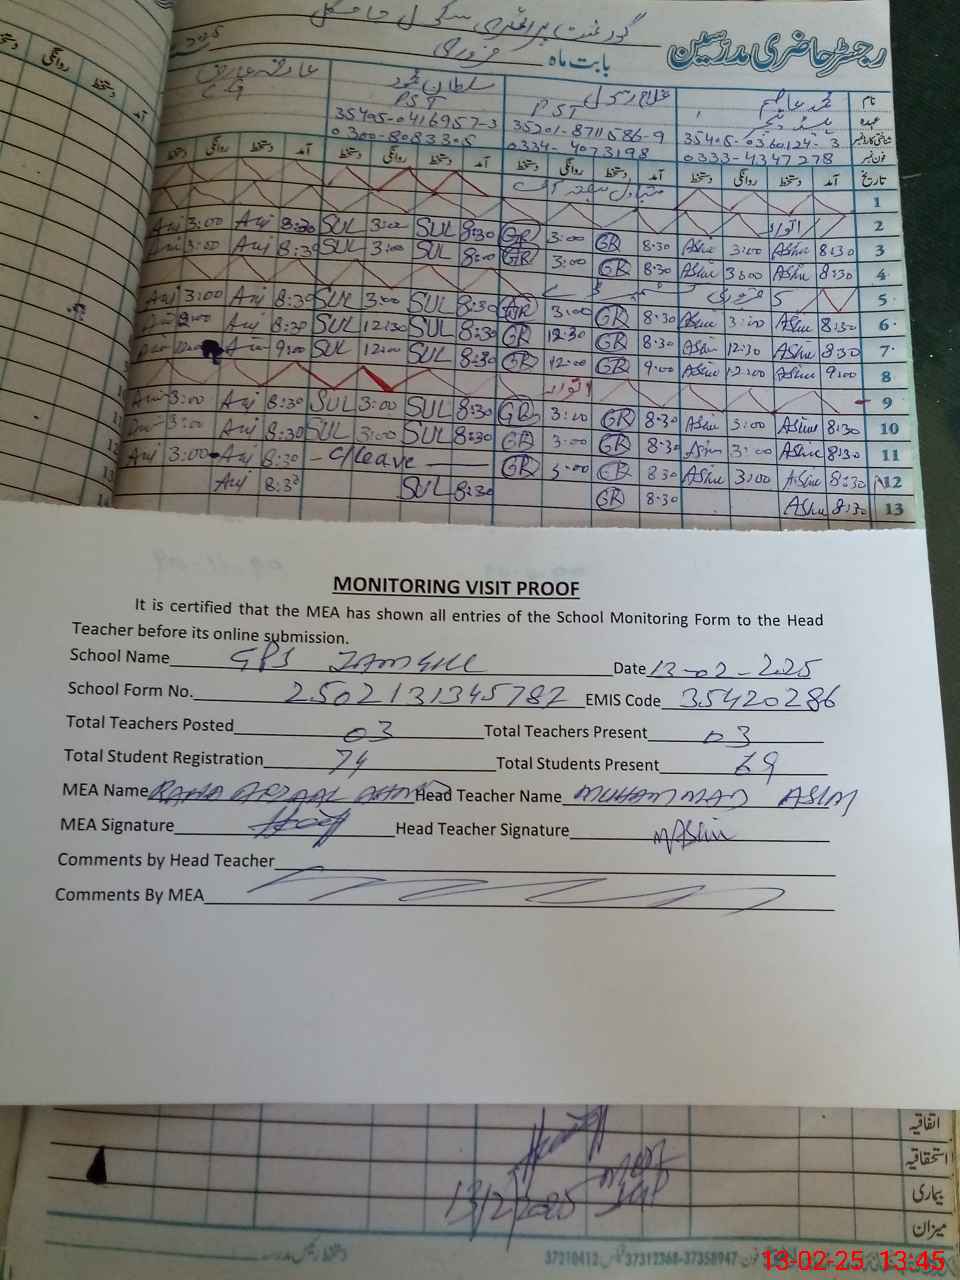 گورنمنٹ پرائمری سکول جامکے
رجسٹر حاضری مدرسین
بابت ماہ فروری
نام محمد عاصم غلام رسول سلطان محمود
عہدہ PST PST
شناختی کارڈ نمبر 35405-0360124-3 35201-8711586-9 35405-0416957-3
فون نمبر 0333-4347278 0334-4073198 0300-8083305
تاریخ آمد دستخط روانگی دستخط آمد دستخط روانگی دستخط آمد دستخط روانگی دستخط آمد دستخط روانگی دستخط
1
2 اتوار
3 8:30 AShu 3:00 AShu 8:30 GR 3:00 GR 8:30 SUL 3:00 SUL 8:30 Arj 3:00 Arj
4 8:30 AShu 3:00 AShu 8:30 GR 3:00 GR 8:00 SUL 3:00 SUL 8:30 Arj 3:00
5 5 فروری
6 8:30 AShu 3:00 AShu 8:30 GR 3:00 GR 8:30 SUL 3:00 SUL 8:30 Arj 3:00 Arj
7 8:30 AShu 12:30 AShu 8:30 GR 12:30 GR 8:30 SUL 12:30 SUL 8:30 Arj
8 9:00 AShu 12:00 AShu 9:00 GR 12:00 GR 8:30 SUL 12:00 SUL 9:00
9 اتوار
10 8:30 AShu 3:00 AShu 8:30 GR 3:00 GR 8:30 SUL 3:00 SUL 8:30 Arj 3:00
11 8:30 AShu 3:00 AShu 8:30 GR 3:00 GR 8:30 SUL 3:00 SUL 8:30 Arj 3:00
12 8:30 AShu 3:00 AShu 8:30 GR 3:00 GR C/Leave 8:30 Arj 3:00 Arj
13 8:30 AShu 8:30 GR 8:30 SUL 8:30 Arj
MONITORING VISIT PROOF
It is certified that the MEA has shown all entries of the School Monitoring Form to the Head
Teacher before its online submission.
School Name GPS JAMKE Date 13-02-2025
School Form No. 2502131345787 EMIS Code 35420286
Total Teachers Posted 03 Total Teachers Present 03
Total Student Registration 74 Total Students Present 69
MEA Name RANA AFZAAL AHMAD Head Teacher Name MUHAMMAD ASIM
MEA Signature Head Teacher Signature MAShu
Comments by Head Teacher
Comments By MEA
اتفاقیہ
استحقاقیہ
بیماری
میزان
13/2/2025
37210412 37312368-37358947
13-02-25 13:45